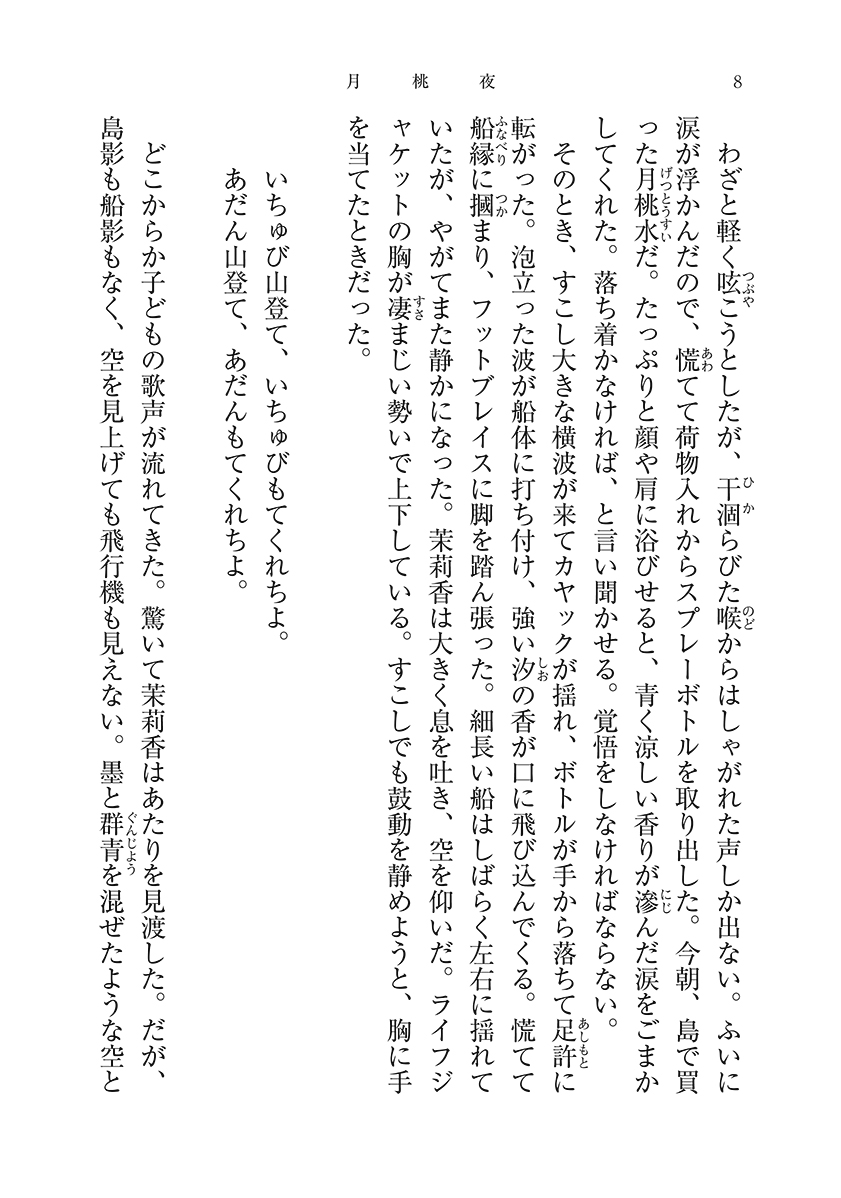 月桃夜
8
わざと軽く呟こうとしたが、干涸らびた喉からはしゃがれた声しか出ない。ふいに
涙が浮かんだので、慌てて荷物入れからスプレーボトルを取り出した。今朝、島で買
った月桃水だ。たっぷりと顔や肩に浴びせると、青く涼しい香りが滲んだ涙をごまか
してくれた。落ち着かなければ、と言い聞かせる。覚悟をしなければならない。
そのとき、すこし大きな横波が来てカヤックが揺れ、ボトルが手から落ちて足許に
転がった。泡立った波が船体に打ち付け、強い汐の香が口に飛び込んでくる。慌てて
船縁に摑まり、フットブレイスに脚を踏ん張った。細長い船はしばらく左右に揺れて
いたが、やがてまた静かになった。茉莉香は大きく息を吐き、空を仰いだ。ライフジ
ャケットの胸が凄まじい勢いで上下している。すこしでも鼓動を静めようと、胸に手
を当てたときだった。
いちゅび山登て、いちゅびもてくれちよ。
あだん山登て、あだんもてくれちよ。
どこからか子どもの歌声が流れてきた。驚いて茉莉香はあたりを見渡した。だが、
島影も船影もなく、空を見上げても飛行機も見えない。墨と群青を混ぜたような空と